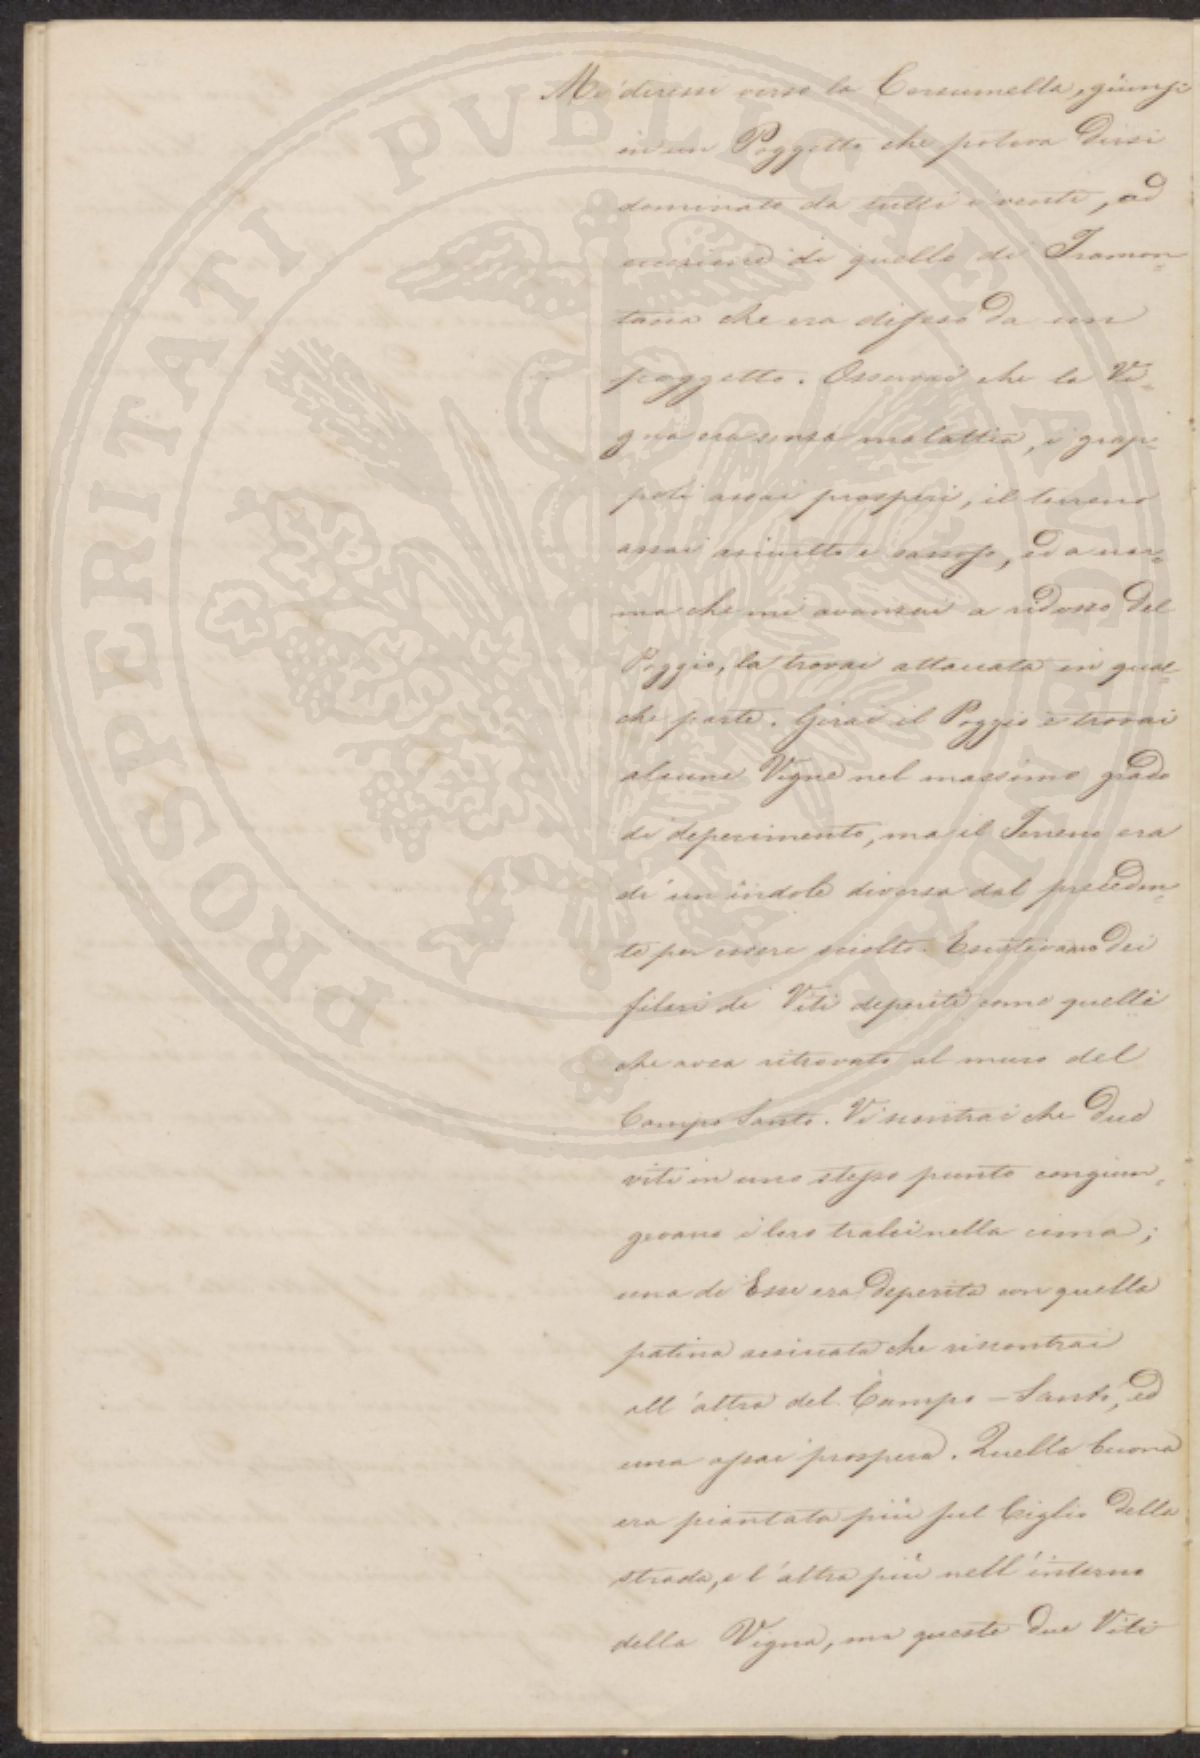 Mi diressi verso la Corsumella, giunsi
in un Poggetto che poteva dirsi
dominato da tutti i venti, ad
eccezione di quello di Tramon=
tana che era difeso da un
poggetto. Osservai che la Vi=
gna era senza malattia, i grap=
poli assai prosperi, il terreno
assai asciutto e sassoso, ed a nor=
ma che mi avanzai a ridosso del
Poggio, la trovai attaccata in qual=
che parte. Girai il Poggio e trovai
alcune Vigne nel massimo grado
di deperimento, ma il Terreno era
di un'indole diversa dal preceden=
te per essere sciolto. Esistevano dei
filari di Viti deperiti come quelli
che avea ritrovato al muro del
Campo Santo. Vi scontrai che due
viti in uno stesso punto congiun=
gevano i loro tralci nella cima;
una di Esse era deperita con quella
patina assicata che riscontrai
all'altra del Campo-Santo, ed
una assai prospera. Quella buona
era piantata più sul Ciglio della
strada, e l'altra più nell'interno
della Vigna, ma queste due Viti
PROSPERITATI PUBLICAE AUGENDAE